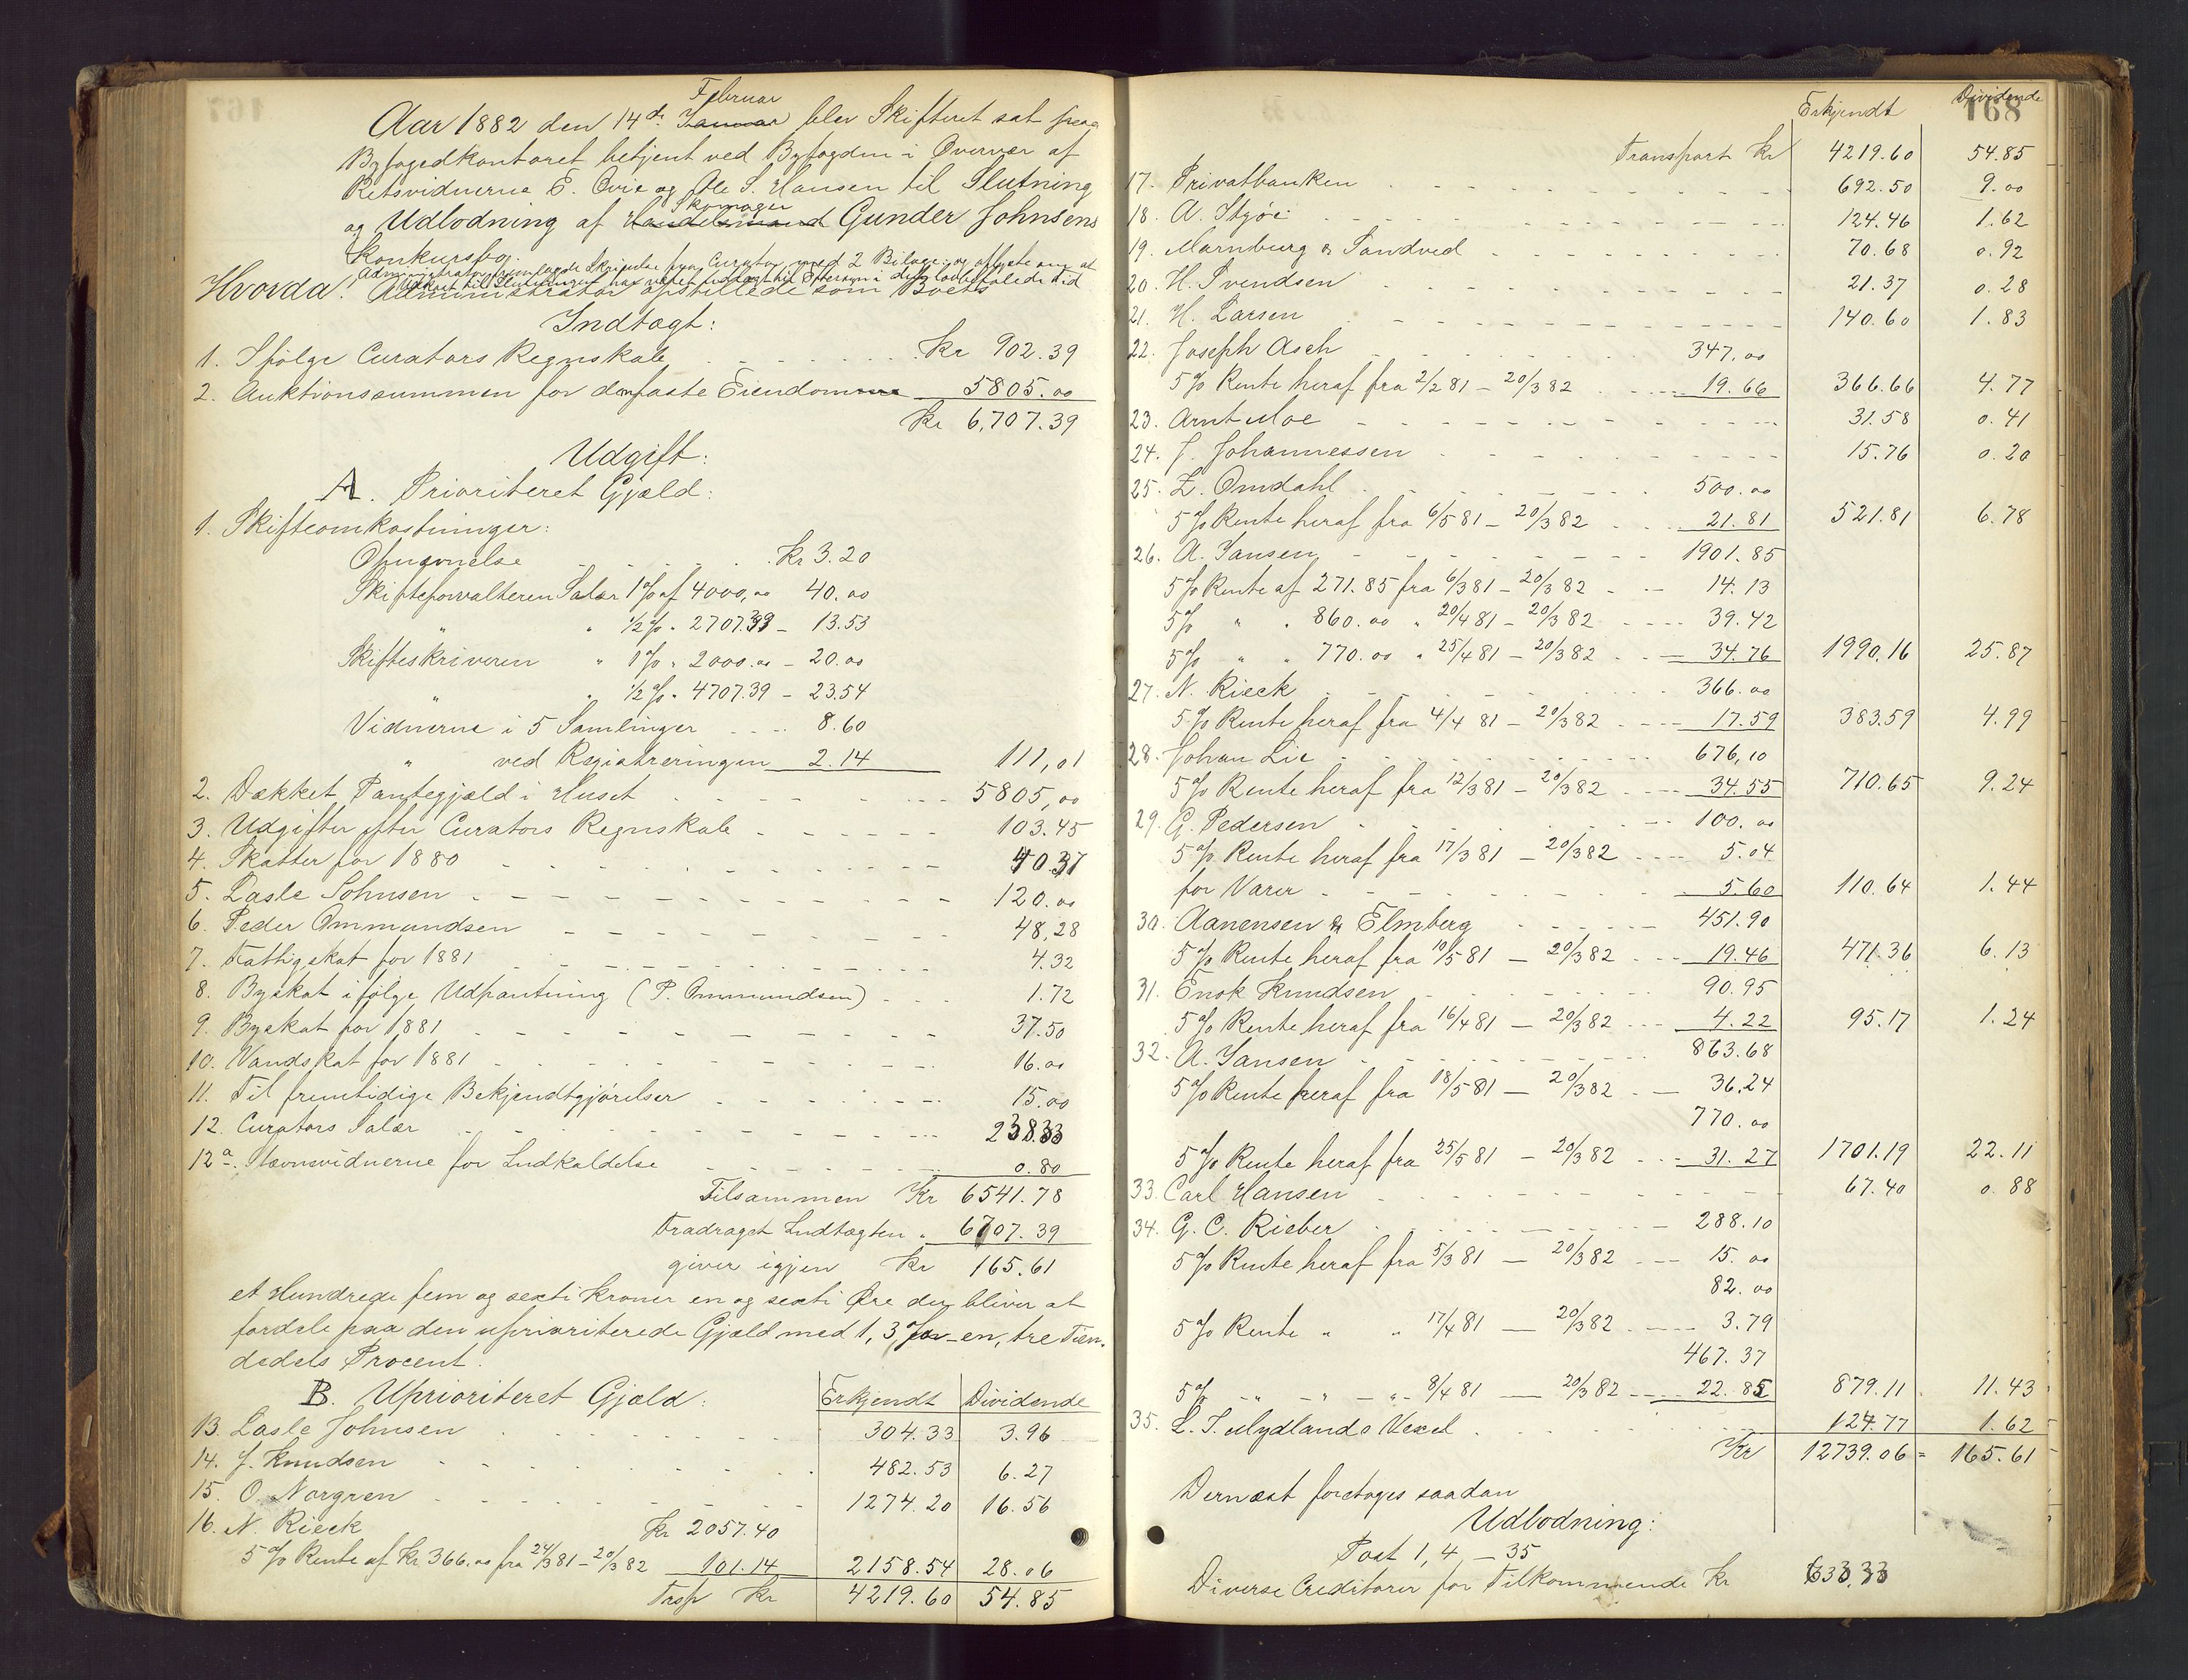 Februar
Aar 1882 den 14de Januar blev Skifteret sat paa
Byfogedkontoret betjent ved Byfogden i Overvær af
Retsvidnerne E. Qvie og Ole S. Hansen til Slutning
Skomager
og Udlodning af Handelsmand Gunder Johnsens
Konkursbo.
Administrator fremlagde Skrivelse fra Curator med 2 Bilage og oplyste at
Udkast til Slutningen har været udlagt til Eftersyn i den lovbefalede Tid
Hvorda: Administrator opstillede som Boets
Indtægt:
1. Ifølge Curators Regnskab Kr 902.39
2. Auktionssummen for den faste Eiendom 5805.00
Kr 6,707.39
Udgift:
A. Prioriteret Gjæld:
1. Skifteomkostninger:
Opnævnelse Kr 3.20
Skifteforvalteren Salær 1 % af 4000,00 40.00
" " 1/2 % " 2707.39 – 13.53
Skifteskriveren " 1 % " 2000.00 – 20.00
" " 1/2 % " 4707.39 – 23.54
Vidnerne i 5 Samlinger 8.60
" ved Registreringen 2.14 111,01
2. Dækket Pantegjæld i Huset 5805,00
3. Udgifter efter Curators Regnskab 103.45
4. Skatter for 1880 40.37
5. Lasle Johnsen 120.00
6. Peder Ommundsen 48,28
7. Fattigskat for 1881 4.32
8. Byskat ifølge Udpantning (P. Ommundsen) 1.72
9. Byskat for 1881 37.50
10. Vandskat for 1881 16.00
11. Til fremtidige Bekjendtgjørelser 15.00
12. Curators Salær 238.33
12a. Stævnevidnerne for Indkaldelse 0.80
Tilsammen Kr 6541.78
Fradraget Indtægten " 6707.39
giver igjen Kr 165.61
et Hundrede fem og sexti Kroner en og sexti Øre der bliver at
fordele paa den uprioriterede Gjæld med 1,3 % – en, tre Tien-
dedels Procent.
B. Uprioriteret Gjæld: Erkjendt Dividende
13. Lasle Johnsen 304.33 3.96
14. J. Knudsen 482.53 6.27
15. O. Norgren 1274.20 16.56
16. N. Rieck Kr 2057.40
5 % Rente af Kr 366.00 fra 24/3 81 – 20/3 82 101.14 2158.54 28.06
Trsp Kr 4219.60 54.85
168
Erkjendt Dividende
Transport Kr 4219.60 54.85
17. Privatbanken 692.50 9.00
18. A. Stgøi 124.46 1.62
19. Marnburg & Sandved 70.68 0.92
20. H. Svendsen 21.37 0.28
21. H. Larsen 140.60 1.83
22. Joseph Asch 347,00
5 % Rente heraf fra 2/2 81 – 20/3 82 19.66 366.66 4.77
23. Arnt Moe 31.58 0.41
24. J. Johannessen 15.76 0.20
25. Z. Omdahl 500.00
5 % Rente heraf fra 6/5 81 – 20/3 82 21.81 521.81 6.78
26. A. Jansen 1901.85
5 % Rente af 271.85 fra 6/3 81 – 20/3 82 14.13
5 % " " 860.00 " 20/4 81 – 20/3 82 39.42
5 % " " 770.00 " 25/4 81 – 20/3 82 34.76 1990.16 25.87
27. N. Rieck 366.00
5 % Rente heraf fra 4/4 81 – 20/3 82 17.59 383.59 4.99
28. Johan Lie 676,10
5 % Rente heraf fra 12/3 81 – 20/3 82 34.55 710.65 9.24
29. G. Pedersen 100.00
5 % Rente heraf fra 17/3 81 – 20/3 82 5.04
for Varer 5.60 110.64 1.44
30. Aanensen & Elmberg 451.90
5 % Rente heraf fra 10/5 81 – 20/3 82 19.46 471.36 6.13
31. Enok Knudsen 90.95
5 % Rente heraf fra 16/4 81 – 20/3 82 4.22 95.17 1.24
32. A. Jansen 863.68
5 % Rente heraf fra 18/5 81 – 20/3 82 36.24
770.00
5 % Rente heraf fra 25/5 81 – 20/3 82 31.27 1701.19 22.11
33. Carl Hansen 67.40 0.88
34. G. C. Rieber 288.10
5 % Rente heraf fra 5/3 81 – 20/3 82 15.00
82.00
5 % Rente " " 17/4 81 – 20/3 82 3.79
467.37
5 % " " " 8/4 81 – 20/3 82 22.85 879.11 11.43
35. L. S. Mydlands Vexel 124.77 1.62
Kr 12739.06 = 165.61
Dernæst foretoges saadan
Udlodning:
Post 1, 4 – 35
Diverse Creditorer for Tilkommende Kr 633,33